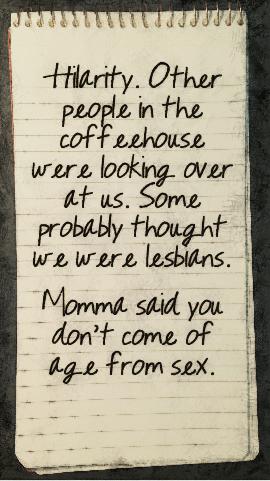 Hilarity. Other
people in the
coffeehouse
were looking over
at us. Some
probably thought
we were lesbians.
Momma said you
don't come of
age from sex.